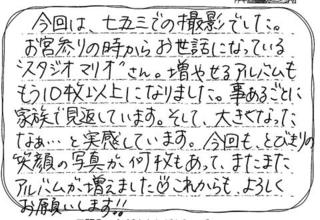 今回は、七五三での撮影でした。
お宮参りの時からお世話になっている
"スタジオマリオ"さん。増やせるアルバムも
もう10枚以上になりました。事あるごとに
家族で見返しています。そして、大きくなった
なぁ…と実感しています。今回も、とびきりの
笑顔の写真が、何枚もあって、またまた
アルバムが増えました これからも、よろしく
お願いします!!